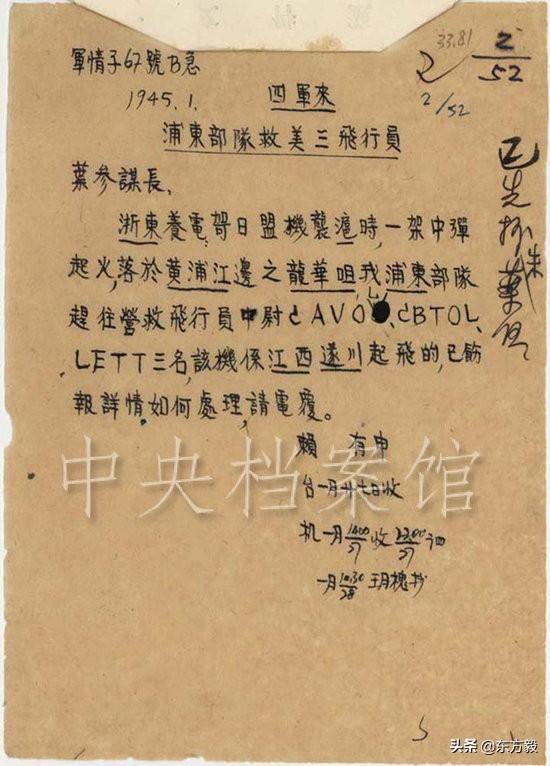 33.81
2
2/52
2/52
軍情子67號B急
1945.1.
四軍來
浦東部隊救美三飛行員
葉參謀長、
浙東養電哿日盟機襲滬時,一架中彈
起火,落於黄浦江邊之龍華咀,我浦東部隊
趕往營救飛行員中尉
LETT三名,該機係江西遂川起飛的,已飭
報詳情,如何處理,請電覆。
賴 有申
台一月廿七日收
机一月1400/27收2200/27
一月1030/28
已先抄朱
中央档案馆
头条@东方毅